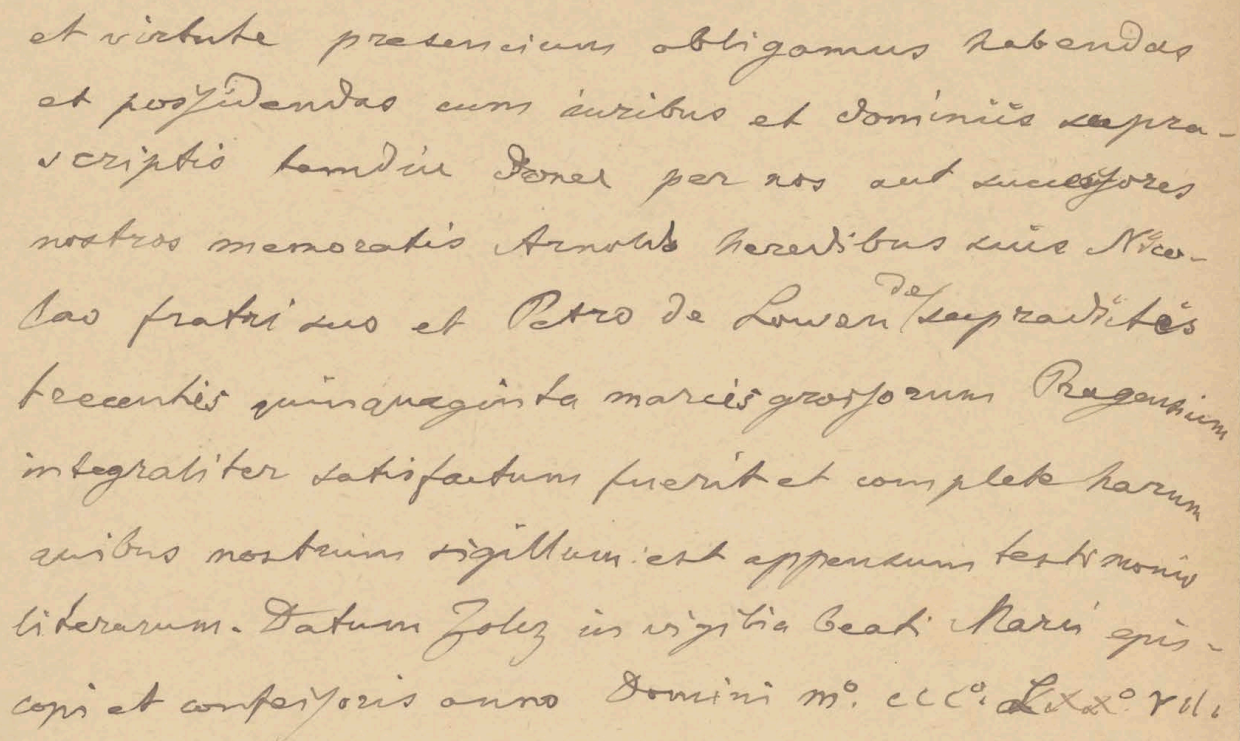 et virtute presencium obligamus habendas
et possidendas cum iuribus et dominiis supra-
scriptis tamdiu donec per nos aut successores
nostros memoratis Arnoldo heredibus suis Nico-
lao fratri suo et Petro de Lowen de supradictis
trecentis quinquaginta marcis grossorum Pragensium
integraliter satisfactum fuerit et complete harum
quibus nostrum sigillum est appensum testimonio
literarum. Datum in vigilia beati episcopi-
copi et confessoris anno Domini mº. cccº. Lxxº. viii.